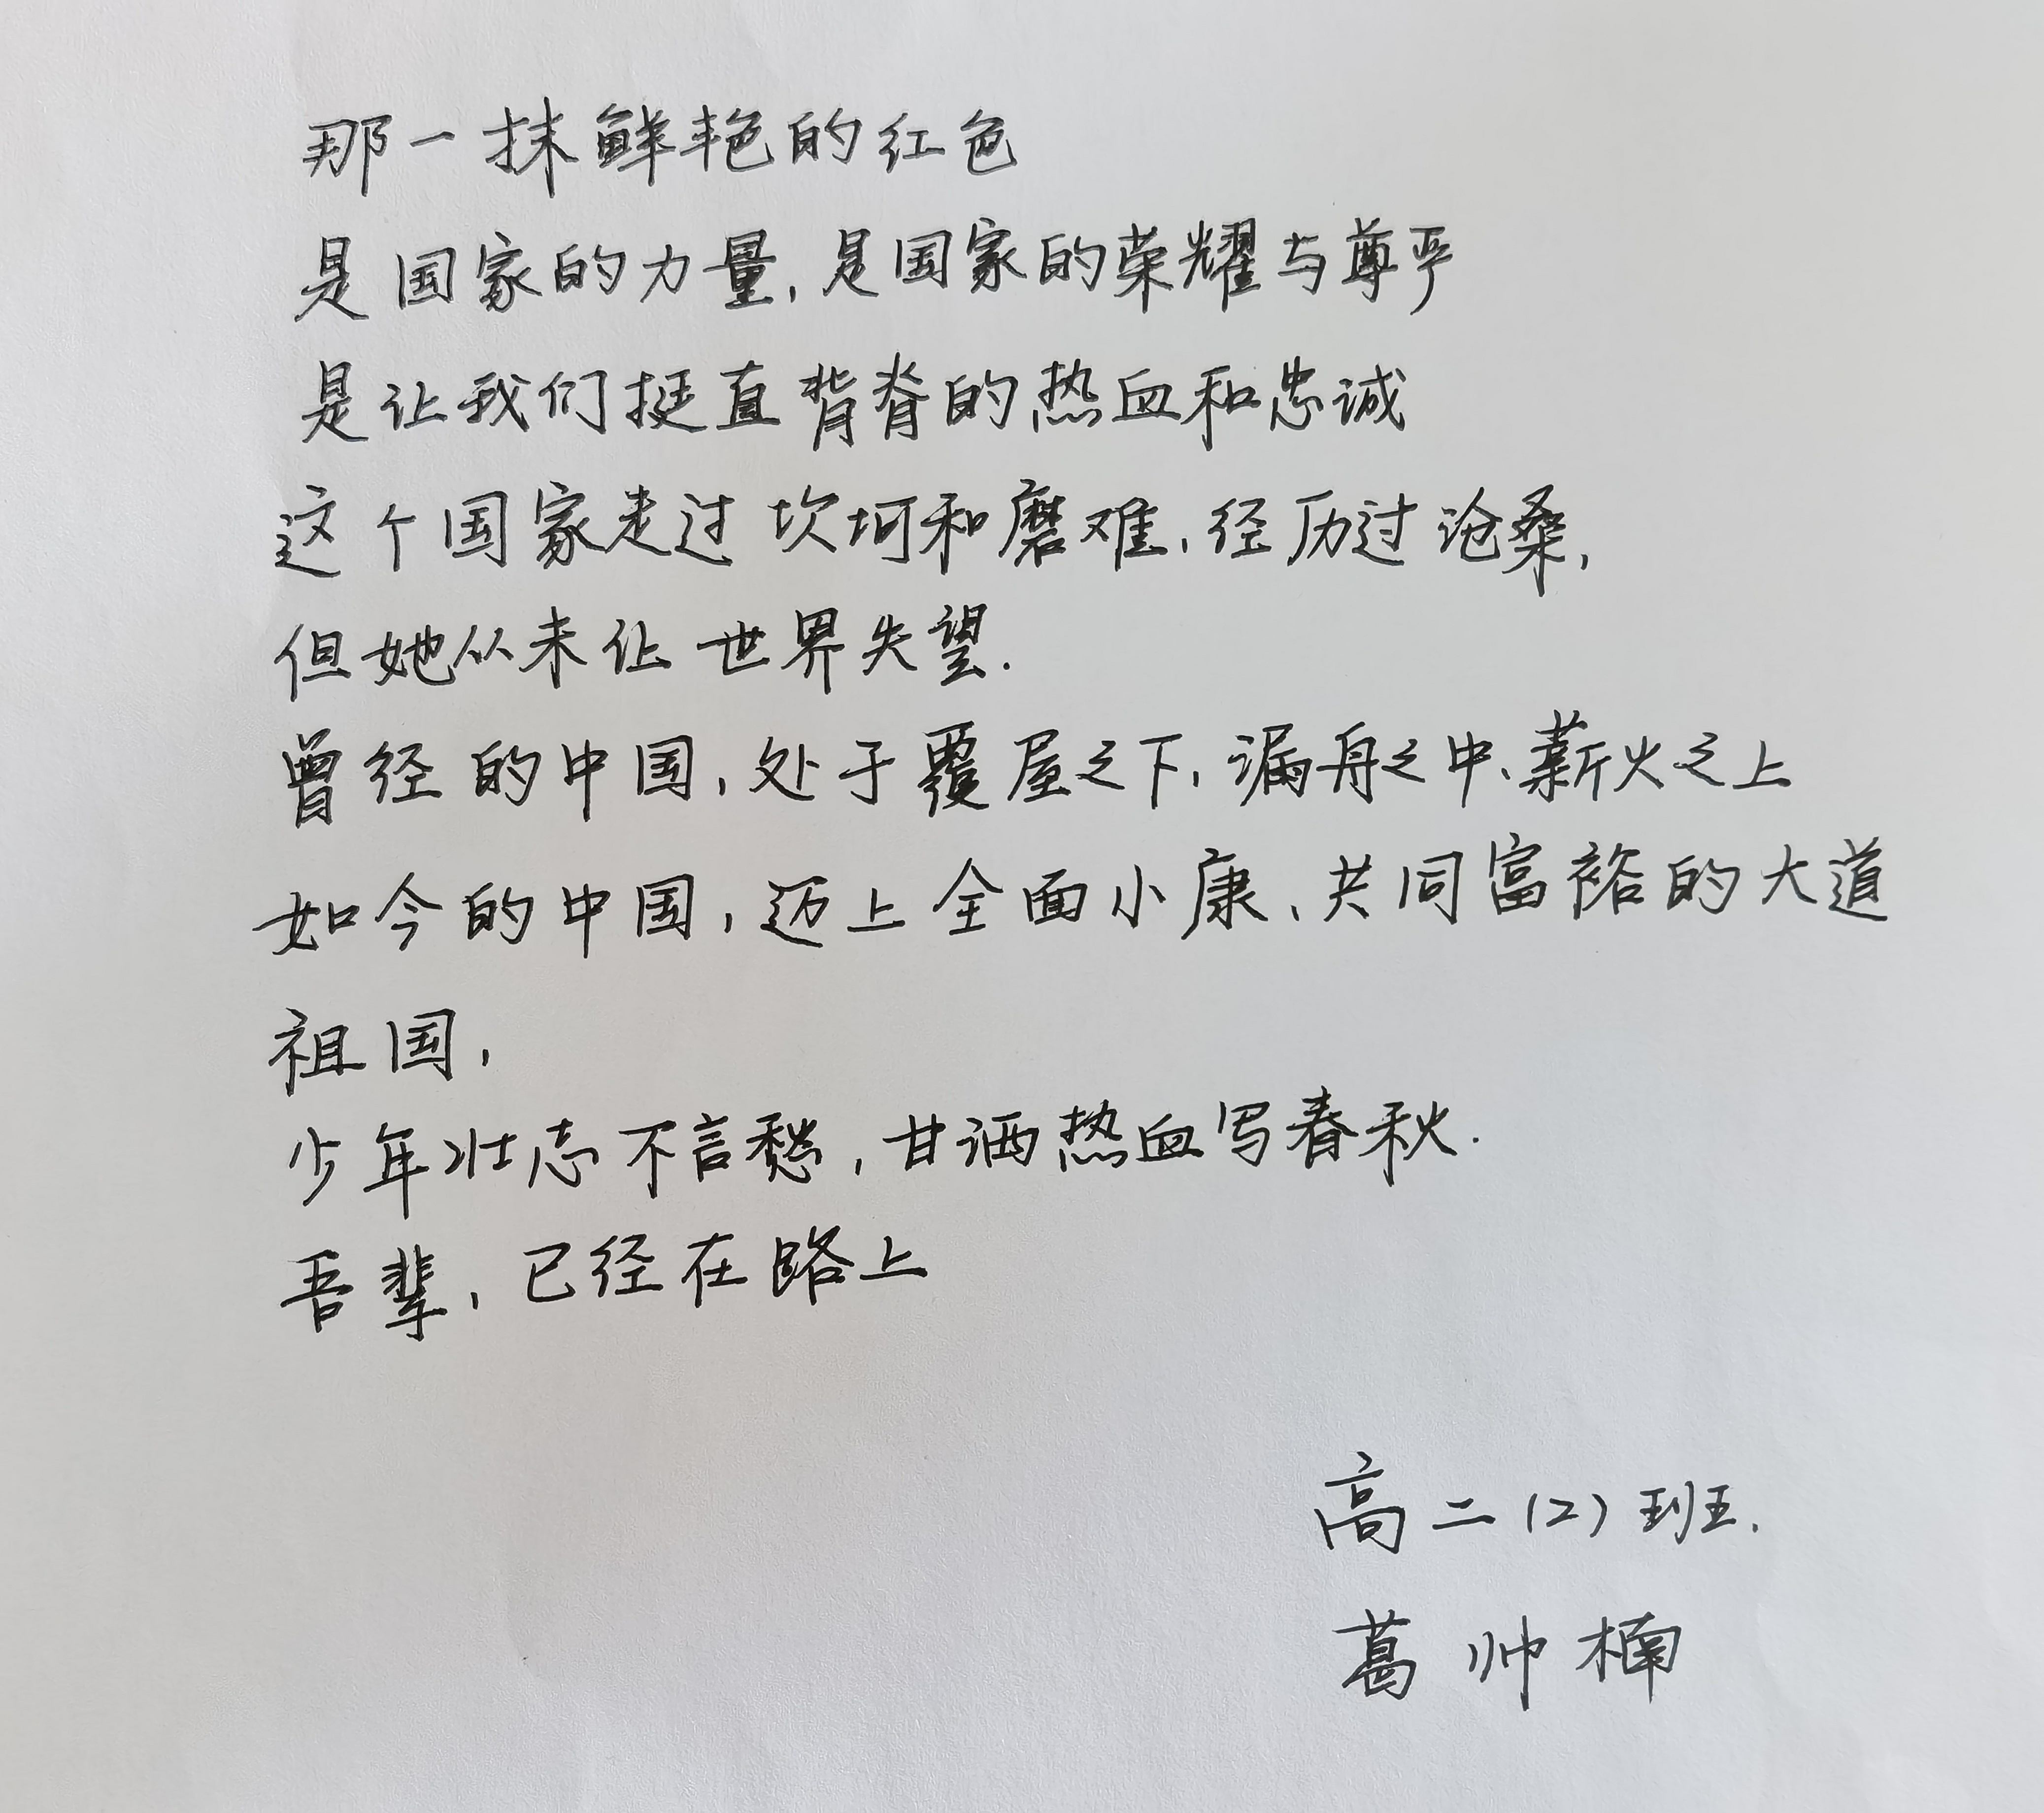 那一抹鲜艳的红色
是国家的力量，是国家的荣耀与尊严
是让我们挺直背脊的热血和忠诚
这个国家走过坎坷和磨难，经历过沧桑，
但她从未让世界失望.
曾经的中国，处于覆屋之下，漏舟之中、薪火之上
如今的中国，迈上全面小康、共同富裕的大道
祖国，
少年壮志不言愁，甘洒热血写春秋.
吾辈，已经在路上
高二（2）班.
葛帅楠